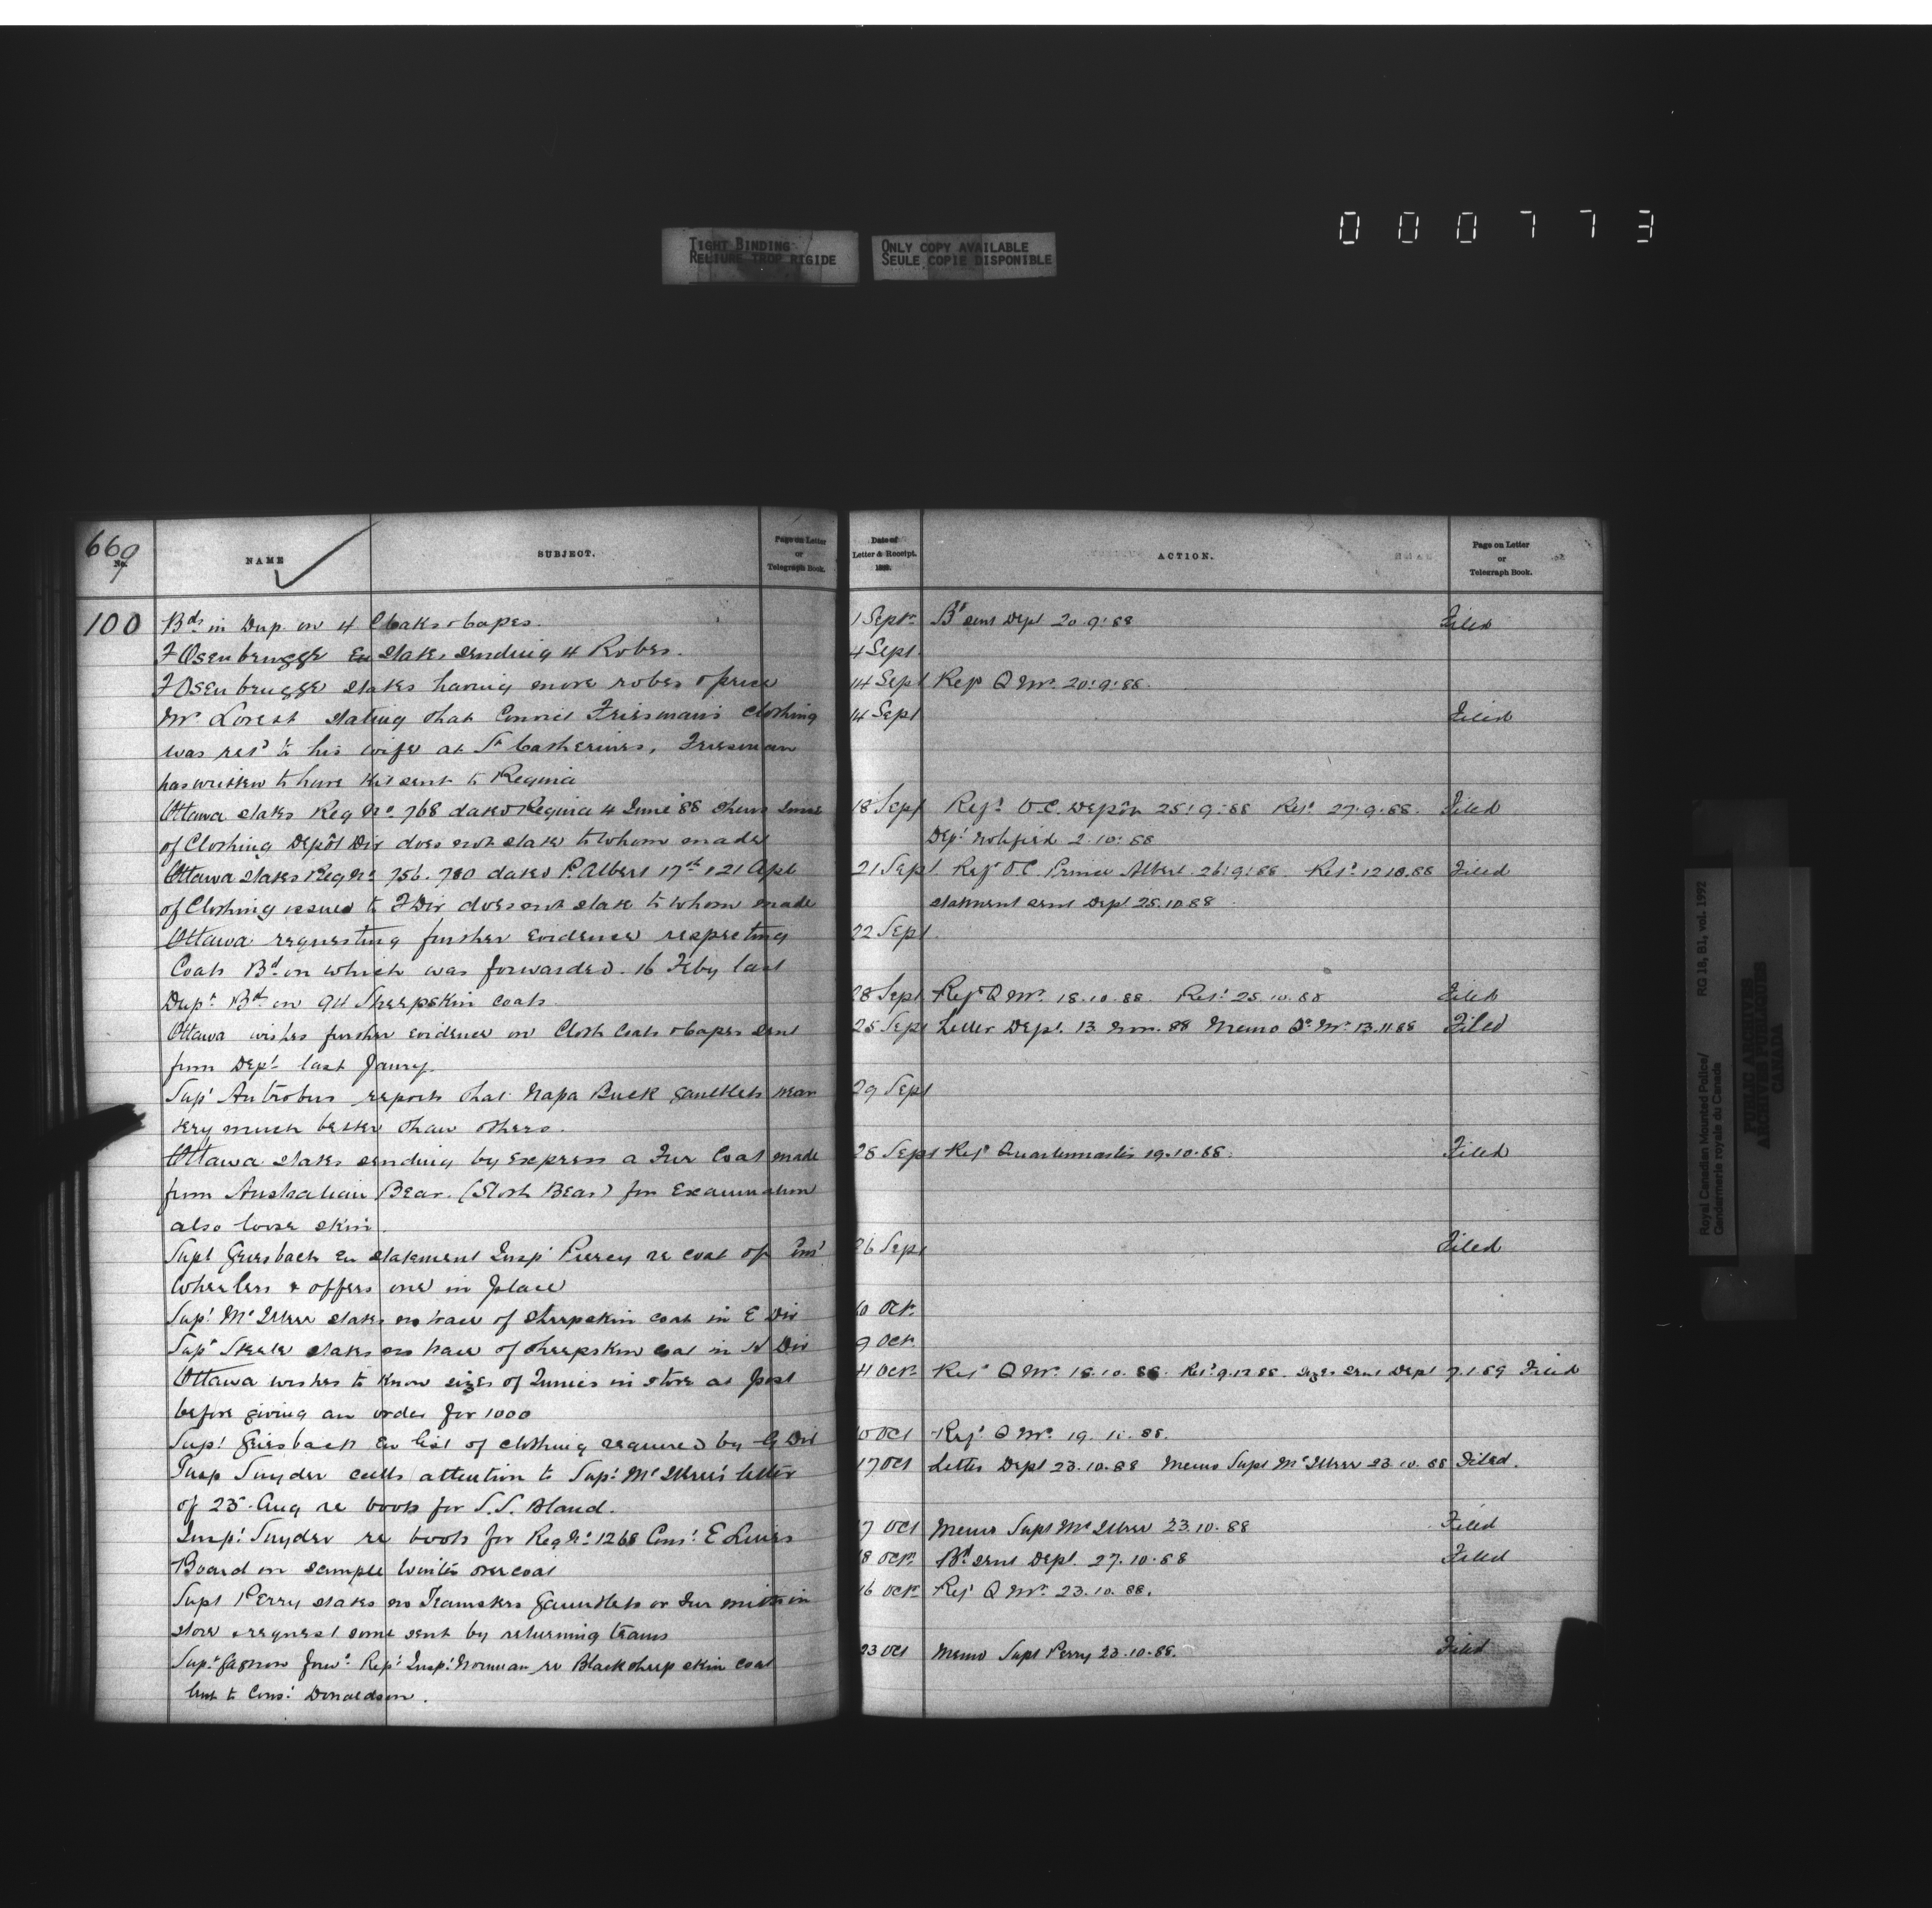 000773
TIGHT BINDING
RELIURE TROP RIGIDE
ONLY COPY AVAILABLE
SEULE COPIE DISPONIBLE
669
No.
NAME
SUBJECT.
Page on Letter
or
Telegraph Book.
100
Bds in Dup on 4 Cloaks & Capes.
F Osenbrugge En states sending 4 Robes.
F Osenbrugge states having more robes & price
Mr Lorest stating that Friesman's Clothing
was ret'd to his wife at St Catherines, Friesman
has written to have kit sent to Regina
Ottawa states Req No. 768 dated Regina 4 June '88
of Clothing Depôt Div does not state to whom made
Ottawa states Req No 756. 780 dated P. Albert 17th & 21 Apl
of Clothing issued to F Div does not state to whom made
Ottawa requesting further Evidence respecting
Coats Bd on which was forwarded 16 Feby last
Dept Bd on 94 Sheepskin Coats
Ottawa wishes further Evidence on Cloth Coats & Capes sent
from Dept last Jany.
Supt Antrobus reports that Napa Buck gauntlets wear
very much better than others.
Ottawa states sending by Express a Fur Coat made
from Australian Bear (Sloth Bear) for Examination
also loose skin.
Supt Griesbach En statement Insp Piercy re coat of Const
Wheelers & offers one in place
Supt McIllree states no trace of sheepskin coat in E Div
Supt Steele states no trace of sheepskin coat in Div
Ottawa wishes to know sizes of Tunics in store at post
before giving an order for 1000
Supt Griesbach En list of clothing required by G Div
Insp Snyder calls attention to Supt McIllree's letter
of 25 Aug re boots for S.S. Bland.
Inspt Snyder re boots for Reg No 1268 Const E Lewis
Board on sample Winter overcoat
Supt Perry states no Teamsters Gauntlets or Fur mitts in
store & request some sent by returning teams
Supt Gagnon forwd Rept Inspt Norman re Black sheep skin coat
lent to Const Donaldson.
Date of
Letter & Receipt.
188 .
ACTION.
Page on Letter
or
Telegraph Book.
No.
1 Septr Bd sent Dept 20.9.88 Filed
4 Sept.
14 Sept Ref Q Mr. 20.9.88.
14 Sept Filed
18 Sept Refd O.C. Depôt 25.9.88 Retd 27.9.88. Filed
Dept notified 2.10.88
21 Sept Refd O.C. Prince Albert 26.9.88. Retd 12.10.88 Filed
statement sent Dept 25.10.88
22 Sept.
28 Sept Refd Q Mr. 18.10.88. Retd 25.10.88 Filed
25 Sept Letter Dept. 13 Nov. 88 Memo Q. Mr. 13.11.88 Filed
29 Sept
28 Sept Refd Quartermaster 19.10.88. Filed
26 Sept Filed
10 Oct
9 Oct
4 Oct Refd Q Mr. 18.10.88. Retd 9.12.88. Sizes sent Dept 7.1.89 Filed
10 Oct Refd Q Mr. 19.10.88.
17 Oct Letter Dept 23.10.88 Memo Supt McIllree 23.10.88 Filed.
17 Oct Memo Supt McIllree 23.10.88 Filed
18 Oct Bd sent Dept. 27.10.88 Filed
16 Oct Refd Q Mr. 23.10.88.
23 Oct Memo Supt Perry 23.10.88. Filed
Royal Canadian Mounted Police/
Gendarmerie royale du Canada
RG 18, B1, vol. 1992
PUBLIC ARCHIVES
ARCHIVES PUBLIQUES
CANADA